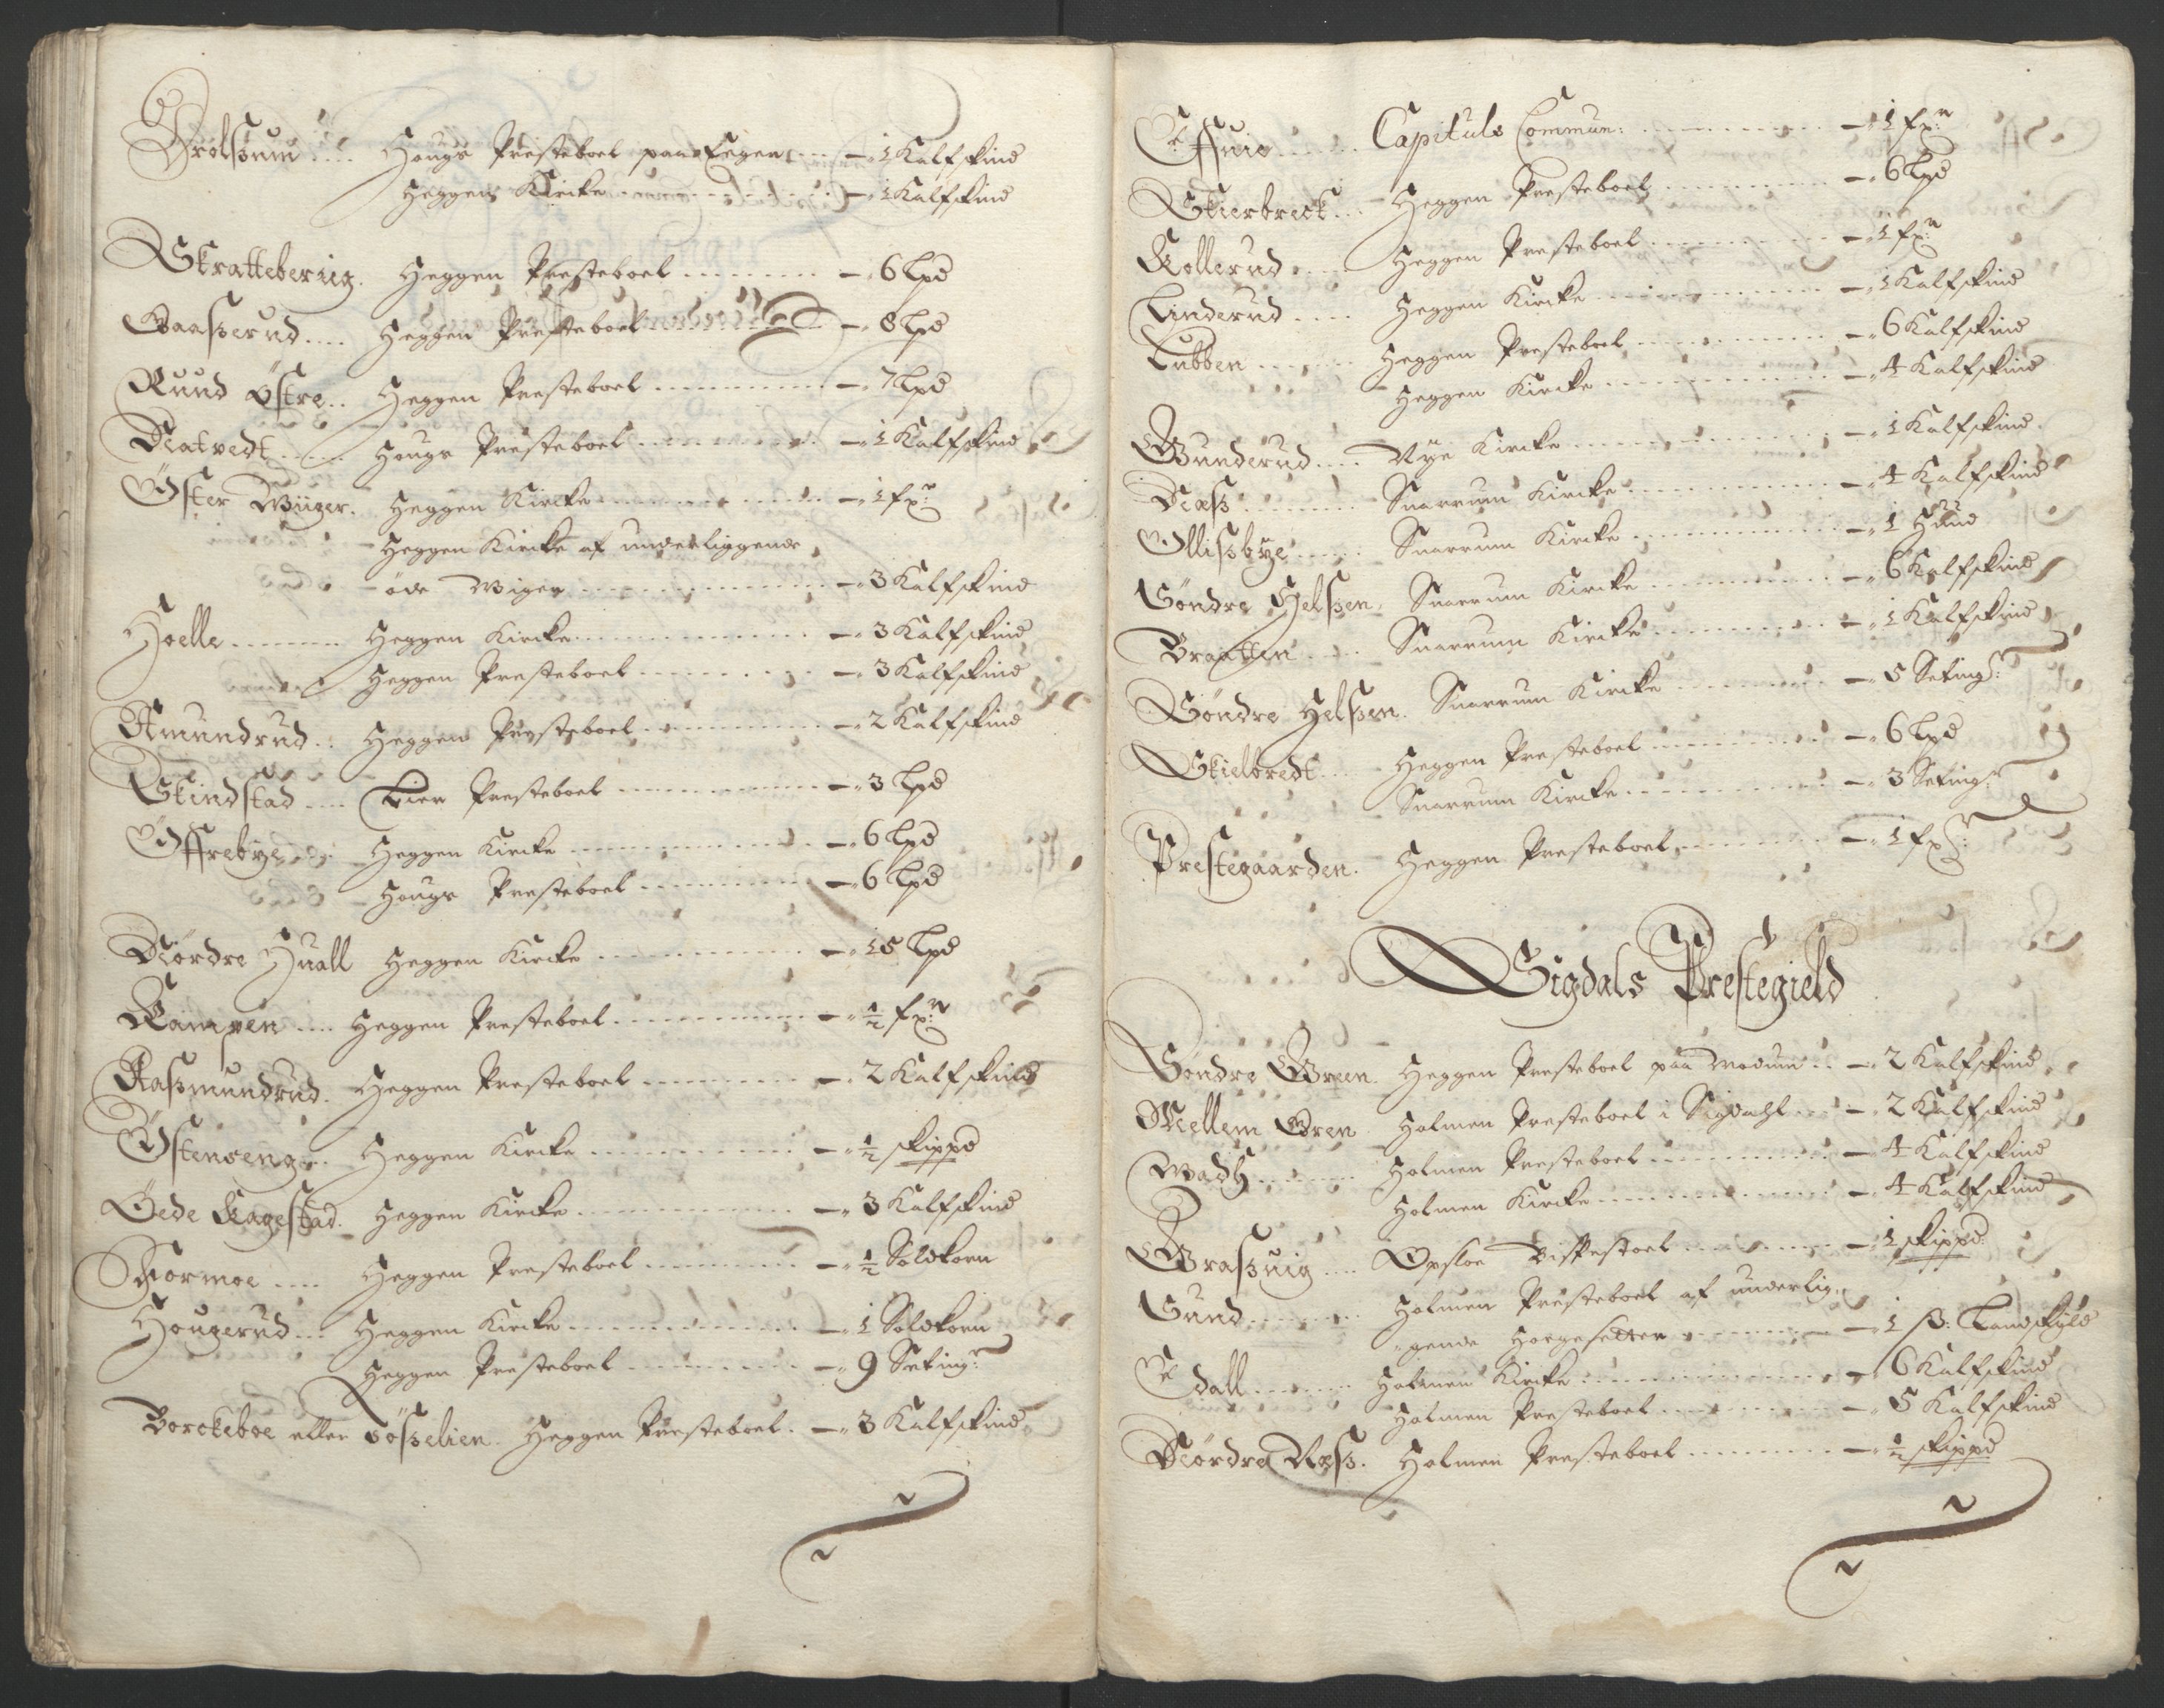 Drolßum .... Hougs Presteboel paa Eger .... 1 Kalfskind
Heggen Kircke ........ 1 Kalfskind
Skratteberug. Heggen Presteboel ........ 6 Lpd
Gaaßerud .... Heggen Presteboel ........ 8 Lpd
Ruud Östre .. Heggen Presteboel ........ 7 Lpd
Natvedt ..... Hougs Presteboel ........ 1 Kalfskind
Öster Wiiger. Heggen Kircke ........ 1 fxr
Heggen Kircke af underliggende
öde Wiger ........ 3 Kalfskind
Hoelle ....... Heggen Kircke ........ 3 Kalfskind
Heggen Presteboel ........ 3 Kalfskind
Amundrud .. Heggen Presteboel ........ 2 Kalfskind
Skindstad .... Lier Presteboel ........ 3 Lpd
Öffrebye .... Heggen Kircke ........ 6 Lpd
Hougs Presteboel ........ 6 Lpd
Nordre Huall Heggen Kircke ........ 15 Lpd
Kampen .... Heggen Presteboel ........ ½ fxr
Aaßmundrud. Heggen Presteboel ........ 2 Kalfskind
Östenseng .. Heggen Kircke ........ ½ skippd
Öede Kagestad. Heggen Kircke ........ 3 Kalfskind
Kormoe .... Heggen Presteboel ........ ½ Soldkorn
Hougerud ... Heggen Kircke ........ 1 Soldkorn
Heggen Presteboel ........ 9 Setingr
Borckeboe eller Foßelien. Heggen Presteboel. 3 Kalfskind
Effuie ..... Capituls Commun: ........ 1 fxr
Skierbreck ... Heggen Presteboel ........ 6 Lpd
Kollerud .... Heggen Presteboel ........ 1 fxr
Linderud .... Heggen Kircke ........ 1 Kalfskind
Lubben ...... Heggen Presteboel ........ 6 Kalfskind
Heggen Kircke ........ 4 Kalfskind
Gunderud .... Nye Kircke ........ 1 Kalfskind
Næß ....... Snarrum Kircke ........ 4 Kalfskind
Ollißbye ..... Snarrum Kircke ........ 1 Huud
Söndre Helßen. Snarrum Kircke ........ 6 Kalfskind
Braatten .... Snarrum Kircke ........ 1 Kalfskind
Söndre Helßen. Snarrum Kircke ........ 5 Setingr
Skielbredt ... Heggen Presteboel ........ 6 Lpd
Snarrum Kircke ........ 3 Setingr
Prestegaarden. Heggen Presteboel ........ 1 fxr
Sigdals Prestegield
Söndre Green. Heggen Presteboel paa Modum .. 2 Kalfskind
Mellem Gren Holmen Presteboel i Sigdahl ... 2 Kalfskind
Wadh ...... Holmen Presteboel ........ 4 Kalfskind
Holmen Kircke ........ 4 Kalfskind
Graßuig .... Opsloe Bispestoel ........ 1 skippd
Sund ....... Holmen Presteboel af underlig-
gende Horgesetter ........ 1 ß: Landskyld
Edall ....... Holmen Kircke ........ 6 Kalfskind
Holmen Presteboel ........ 5 Kalfskind
Nordre Næß. Holmen Presteboel ........ ½ skippd